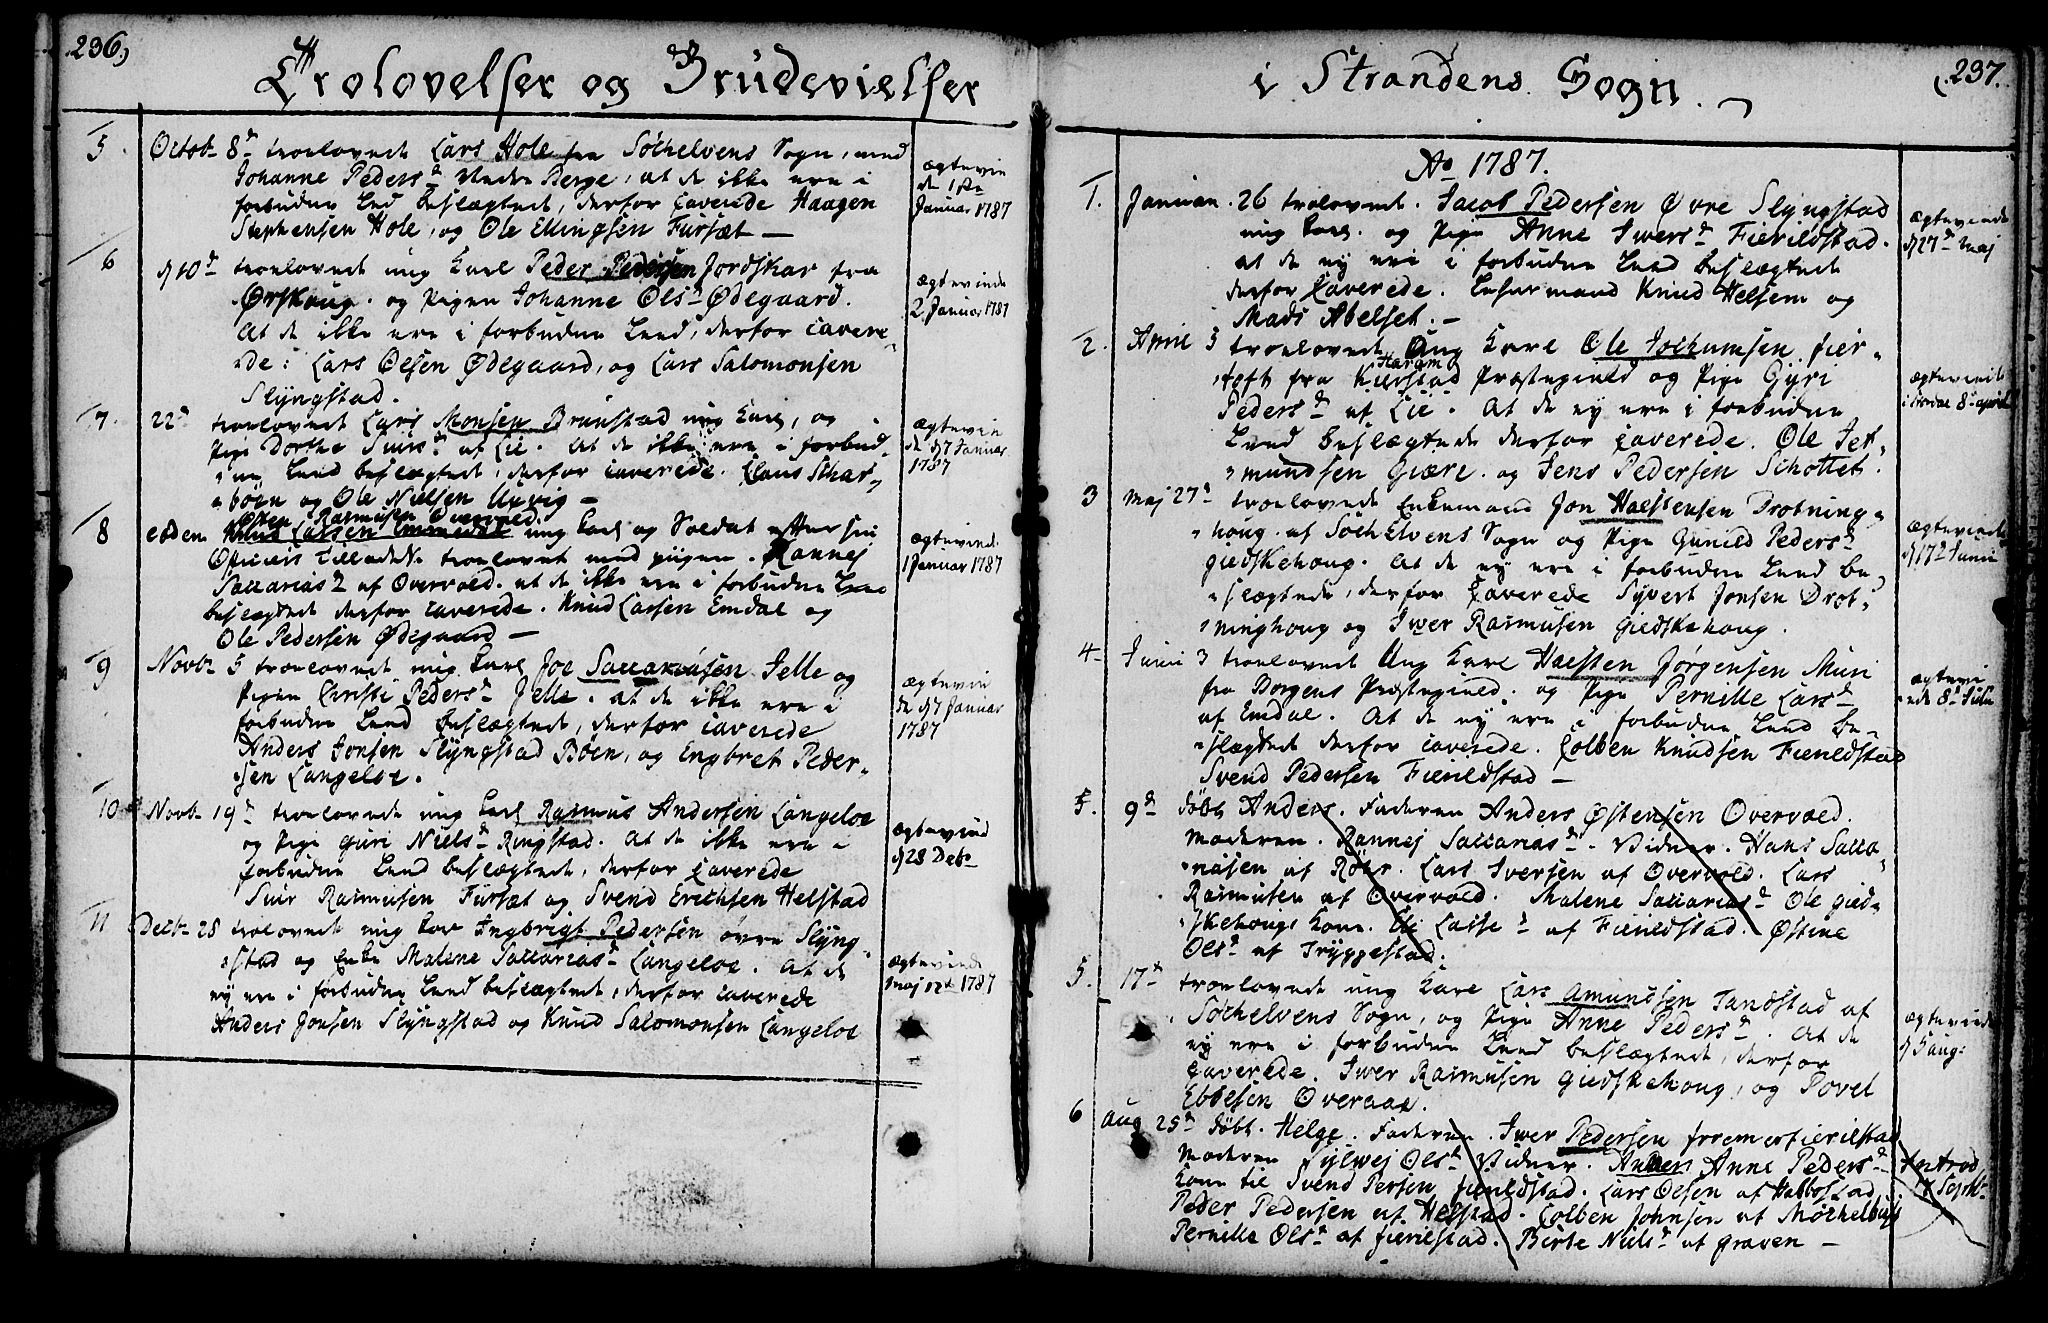 236)
Trolovelser og Brudevielser
5. Octob. 8de troelovede Lars Hole fra Søchelvens Sogn, med
Johanne Pedersd. Nedre Berge, at de ikke ere i
forbudne Leed beslægtede, derfor Caverede Haagen
Stephensen Hole, og Ole Ellingsen Fursæt —
ægtevie
de 1ste
Januar 1787
6 d 10de troelovede ung Karl Peder Pedersen Jordskar fra
Ørskoug. og Pigen Johanne Olsd Ødegaard.
At de ikke ere i forbudne Leed, derfor Cavere-
-de: Lars Olsen Ødegaard, og Lars Salomonsen
Slyngstad.
ægteviede
2. Januar 1787
7. 22de troelovede Lars Monsen Brunstad ung Karl, og
Pige Dorthe Suirsd af Lie. At de ikke ere i forbud-
-ne Leed beslægtede, derfor Caverede. Claus Schar-
-bøen og Ole Nielsen Urvig —
ægtevie
de d 7 Januar
1787
8 eodem Østen Rasmusen Overvold
Knud Lassen Emmedal ung Karl og Soldat efter sin
Officiers Tilladelse troelovet med pigen. Rannej
Saccariasd af Overvold. at de ikke ere i forbudne Leed
beslægtede derfor Caverede. Knud Lassen Emdal og
Ole Pedersen Ødegaard —
ægteviede
1 Januar 1787
9 Novbr 5 troelovede ung Karl Joe Saccariasen Jelle og
Pigen Christi Pedersd Jelle. at de ikke ere i
forbudne Leed beslægtede, derfor Caverede
Anders Jonsen Slyngstad Bøen, og Engbret Peder-
-sen Langeloe.
ægtevie
de d 7 Januar
1787
10 Novbr 19de troelovede ung Karl Rasmus Andersen Langeloe
og Pige Guri Nielsd Ringstad. At de ikke ere i
forbudne Leed beslægtede, derfor Caverede
Suir Rasmusen Fursæt og Svend Erichsen Helstad
ægteviede
d 28 Debr
11 Decbr 28 trolovede ung Karl Ingbrigt Pedersen øvre Slyng-
-stad og Enke Malene Saccariasd Langeloe. At de
ey ere i forbudne Leed beslægtede, derfor Caverede
Anders Jonsen Slyngstad og Knud Salomonsen Langeloe
ægteviede
Maj 1787
i Strandens Sogn.
(237.
Ao 1787.
1. Januari. 26 trolovede. Jacob Pedersen Øvre Slyngstad
ung Karl. og Pige Anne Iversd Fierildstad.
at de ey ere i forbudne Leed beslægtede
derfor Caverede. Lehnsmand Knud Helsem og
Mads Abelset. —
ægteviede
d 27de Maj
2. April 3 troelovede Ung Karl Ole Jochumsen fier-
-toft fra Haram Præstegield og Pige Gyri
Pedersd af Lie. At de ey ere i forbudne
Leed beslægtede derfor Caverede. Ole Jet-
-mundsen Giære. og Jens Pedersen Schottet.
ægteviede
8de april
3 Maj 27de troelovede Enkemand Jon Halstensen Drotning-
-houg af Søchelvens Sogn og Pige Gunild Pedersd
Giedskehoug. At de ey ere i forbudne Leed be-
-slægtede, derfor Caverede Syvert Jonsen Drot-
-ninghoug og Iwer Rasmusen Giedskehoug.
ægteviede
d 17de Junii
4 Junii 3 troelovede Ung Karl Halsten Jørgensen Muri
fra Borgens Præstegield. og Pige Pernille Larsd
af Emdal. At de ey ere i forbudne Leed be-
-slægtede derfor Caverede. Colben Knudsen Fierildstad
Svend Pedersen Fierildstad —
ægtevi
ede 8de Julii
5. 9de døbt Anders. Faderen Anders Østensen Overvold.
Moderen. Rannej Saccariasd. Vidner. Hans Sacca-
-riasen af Røbr. Lars Iversen af Overvold. Lars
Rasmusen af Overvold. Malene Saccariasd Ole Gied-
-skehougs Kone. Eli Lassed af Fierildstad. Østine
Olsd af Tryggestad.
5. 17de troelovede ung Karl Lars Amundsen Tandstad af
Søchelvens Sogn, og Pige Anne Pedersd. At de
ey ere i forbudne Leed beslægtede, derfor
Caverede. Iwer Rasmusen Giedskehoug, og Povel
Ebbesen Overaae.
ægteviede
d 5 aug:
6 Aug 25de døbt. Helge. Faderen. Iwer Pedersen fierilstad
Moderen Sylwej Olsd Vidner. Anne Pedersd
Kone til Svend Persen fierildstad. Lars Olsen af Habbostad
Peder Pedersen af Helstad. Colben Johnsen af Møchelbust
Pernille Olsd af fierilstad. Birte Nielsd af Graven —
Introd
Septbr